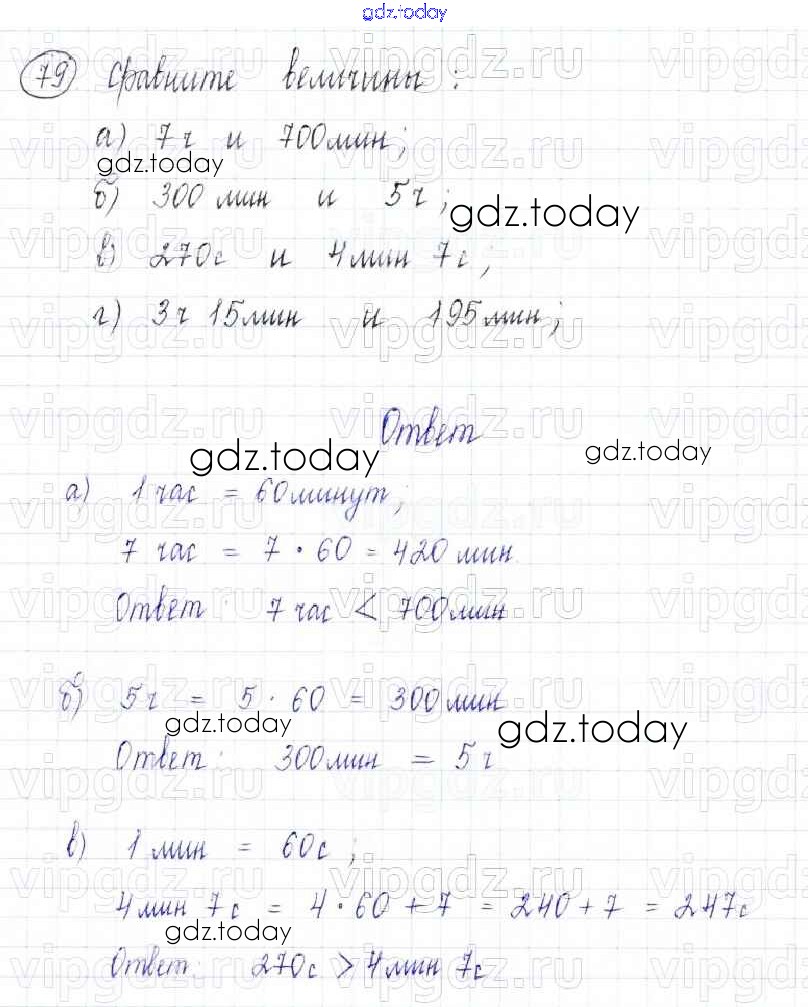 gdz.today
79 Сравните величины:
а) 7ч и 700мин;
gdz.today
б) 300 мин и 5ч;
gdz.today
в) 270с и 4мин 7с;
г) 3ч 15мин и 195мин;
Ответ
gdz.today
gdz.today
а) 1 час = 60минут;
7 час = 7 · 60 = 420 мин
Ответ: 7 час < 700мин
б) 5ч = 5 · 60 = 300 мин
gdz.today
gdz.today
Ответ: 300мин = 5ч
в) 1 мин = 60с;
4мин 7с = 4 · 60 + 7 = 240 + 7 = 247с
gdz.today
Ответ: 270с > 4мин 7с
vipgdz.ru